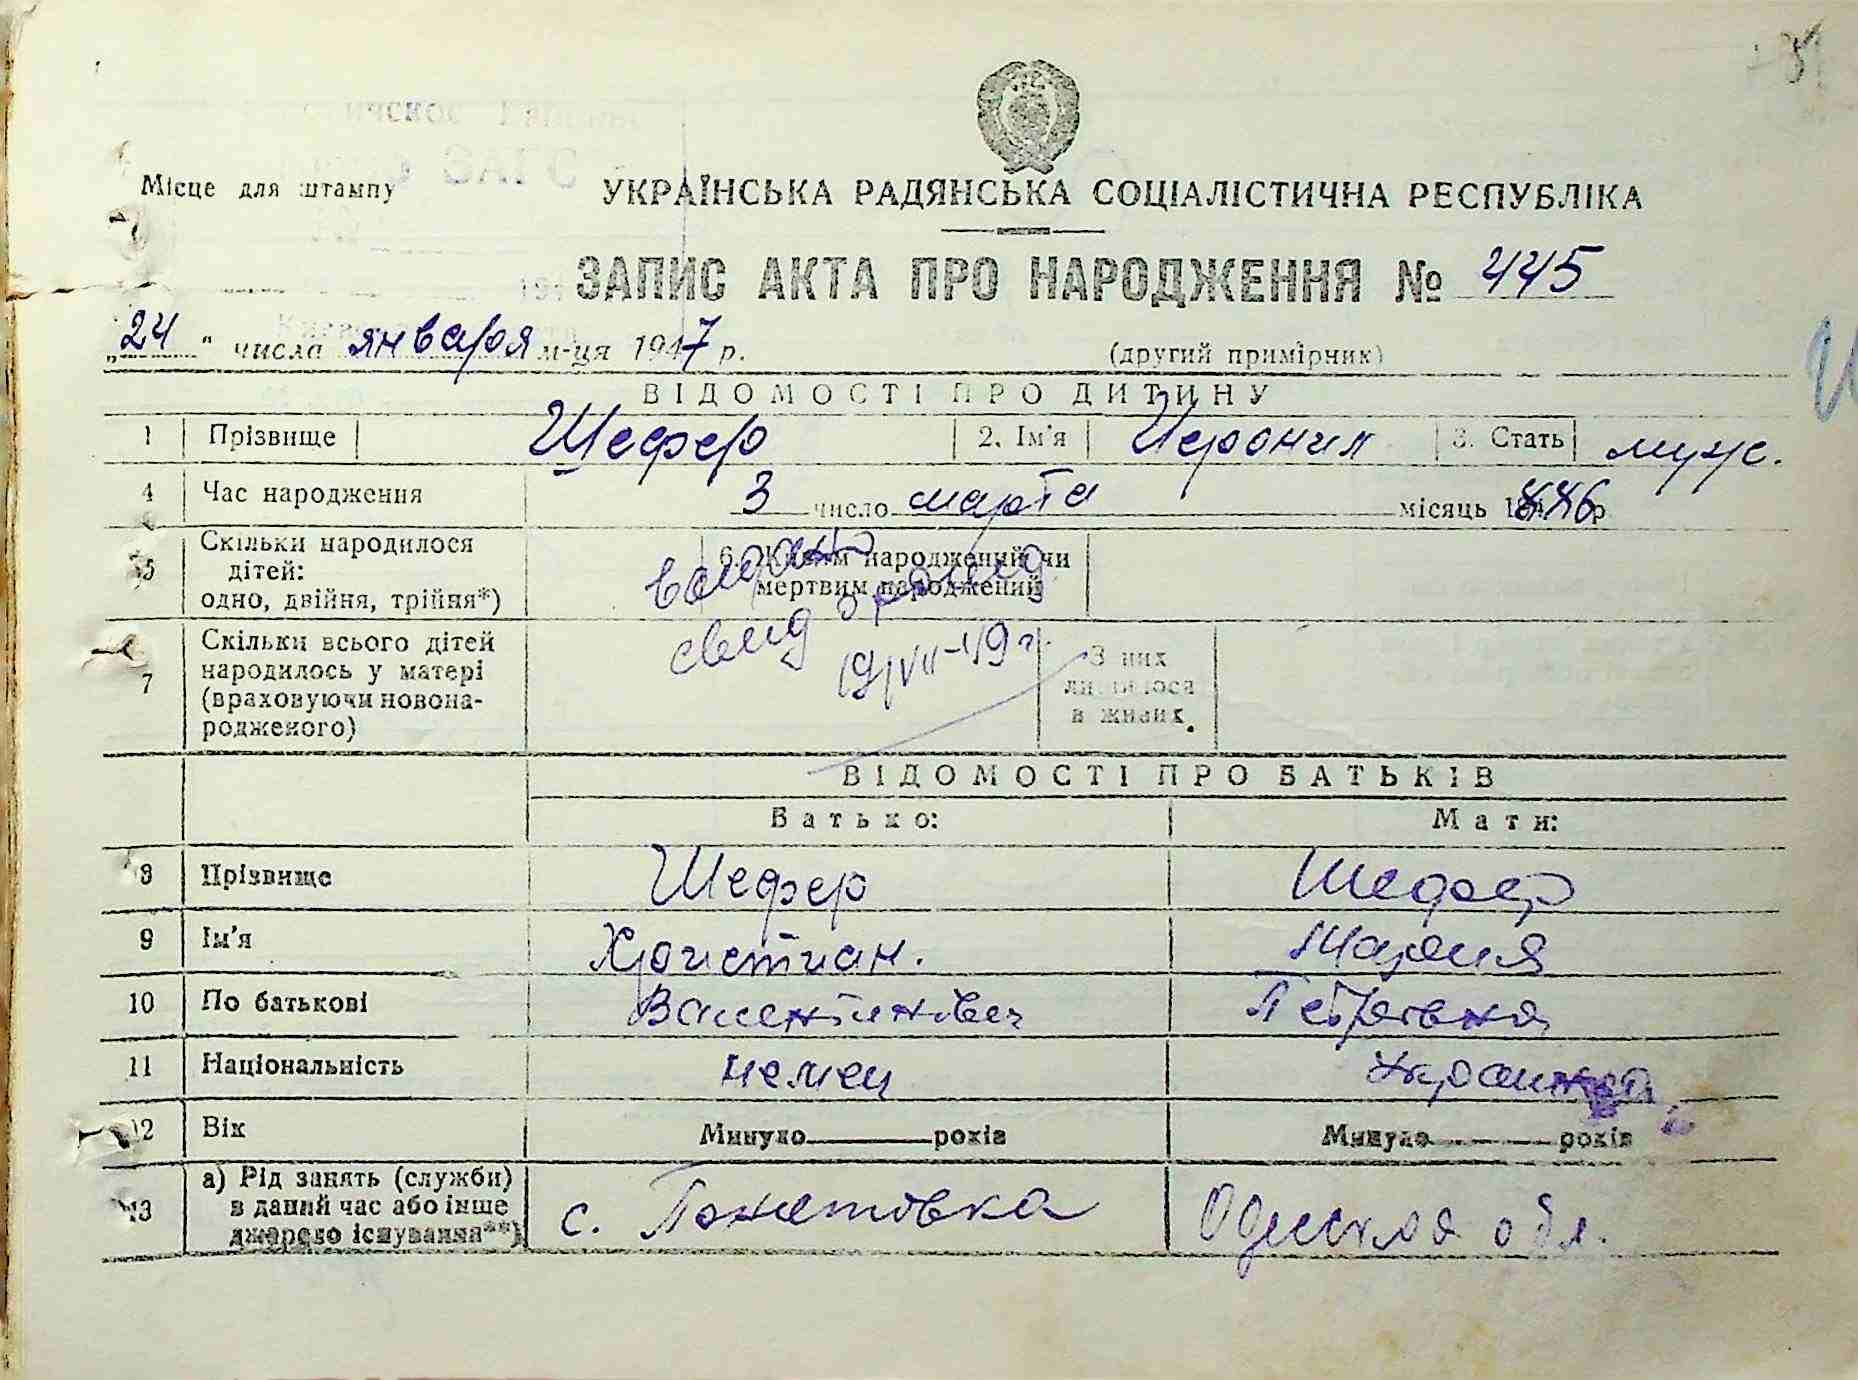 Місце для штампу
УКРАЇНСЬКА РАДЯНСЬКА СОЦІАЛІСТИЧНА РЕСПУБЛІКА
ЗАПИС АКТА ПРО НАРОДЖЕННЯ № 445
„24“ числа января м-ця 1947 р. (другий примірник)
ВІДОМОСТІ ПРО ДИТИНУ
1 Прізвище Шефер 2. Ім'я Иероним 3. Стать муж.
4 Час народження 3 число марта місяць р
5 Скільки народилося
дітей:
одно, двійня, трійня*)
6. Живим народжений чи
мертвим народжений
выдано
свид
7 Скільки всього дітей
народилось у матері
(враховуючи новона-
родженого)
З них
лишилося
в живих.
ВІДОМОСТІ ПРО БАТЬКІВ
Батько: Мати:
8 Прізвище Шефер Шефер
9 Ім'я Христиан. Мария
10 По батькові Валентинович Петровна
11 Національність немец украинка
12 Вік Минуло років Минуло років
13 а) Рід занять (служби)
в даний час або інше
джерело існування**)
с. Понятовка Одесская обл.